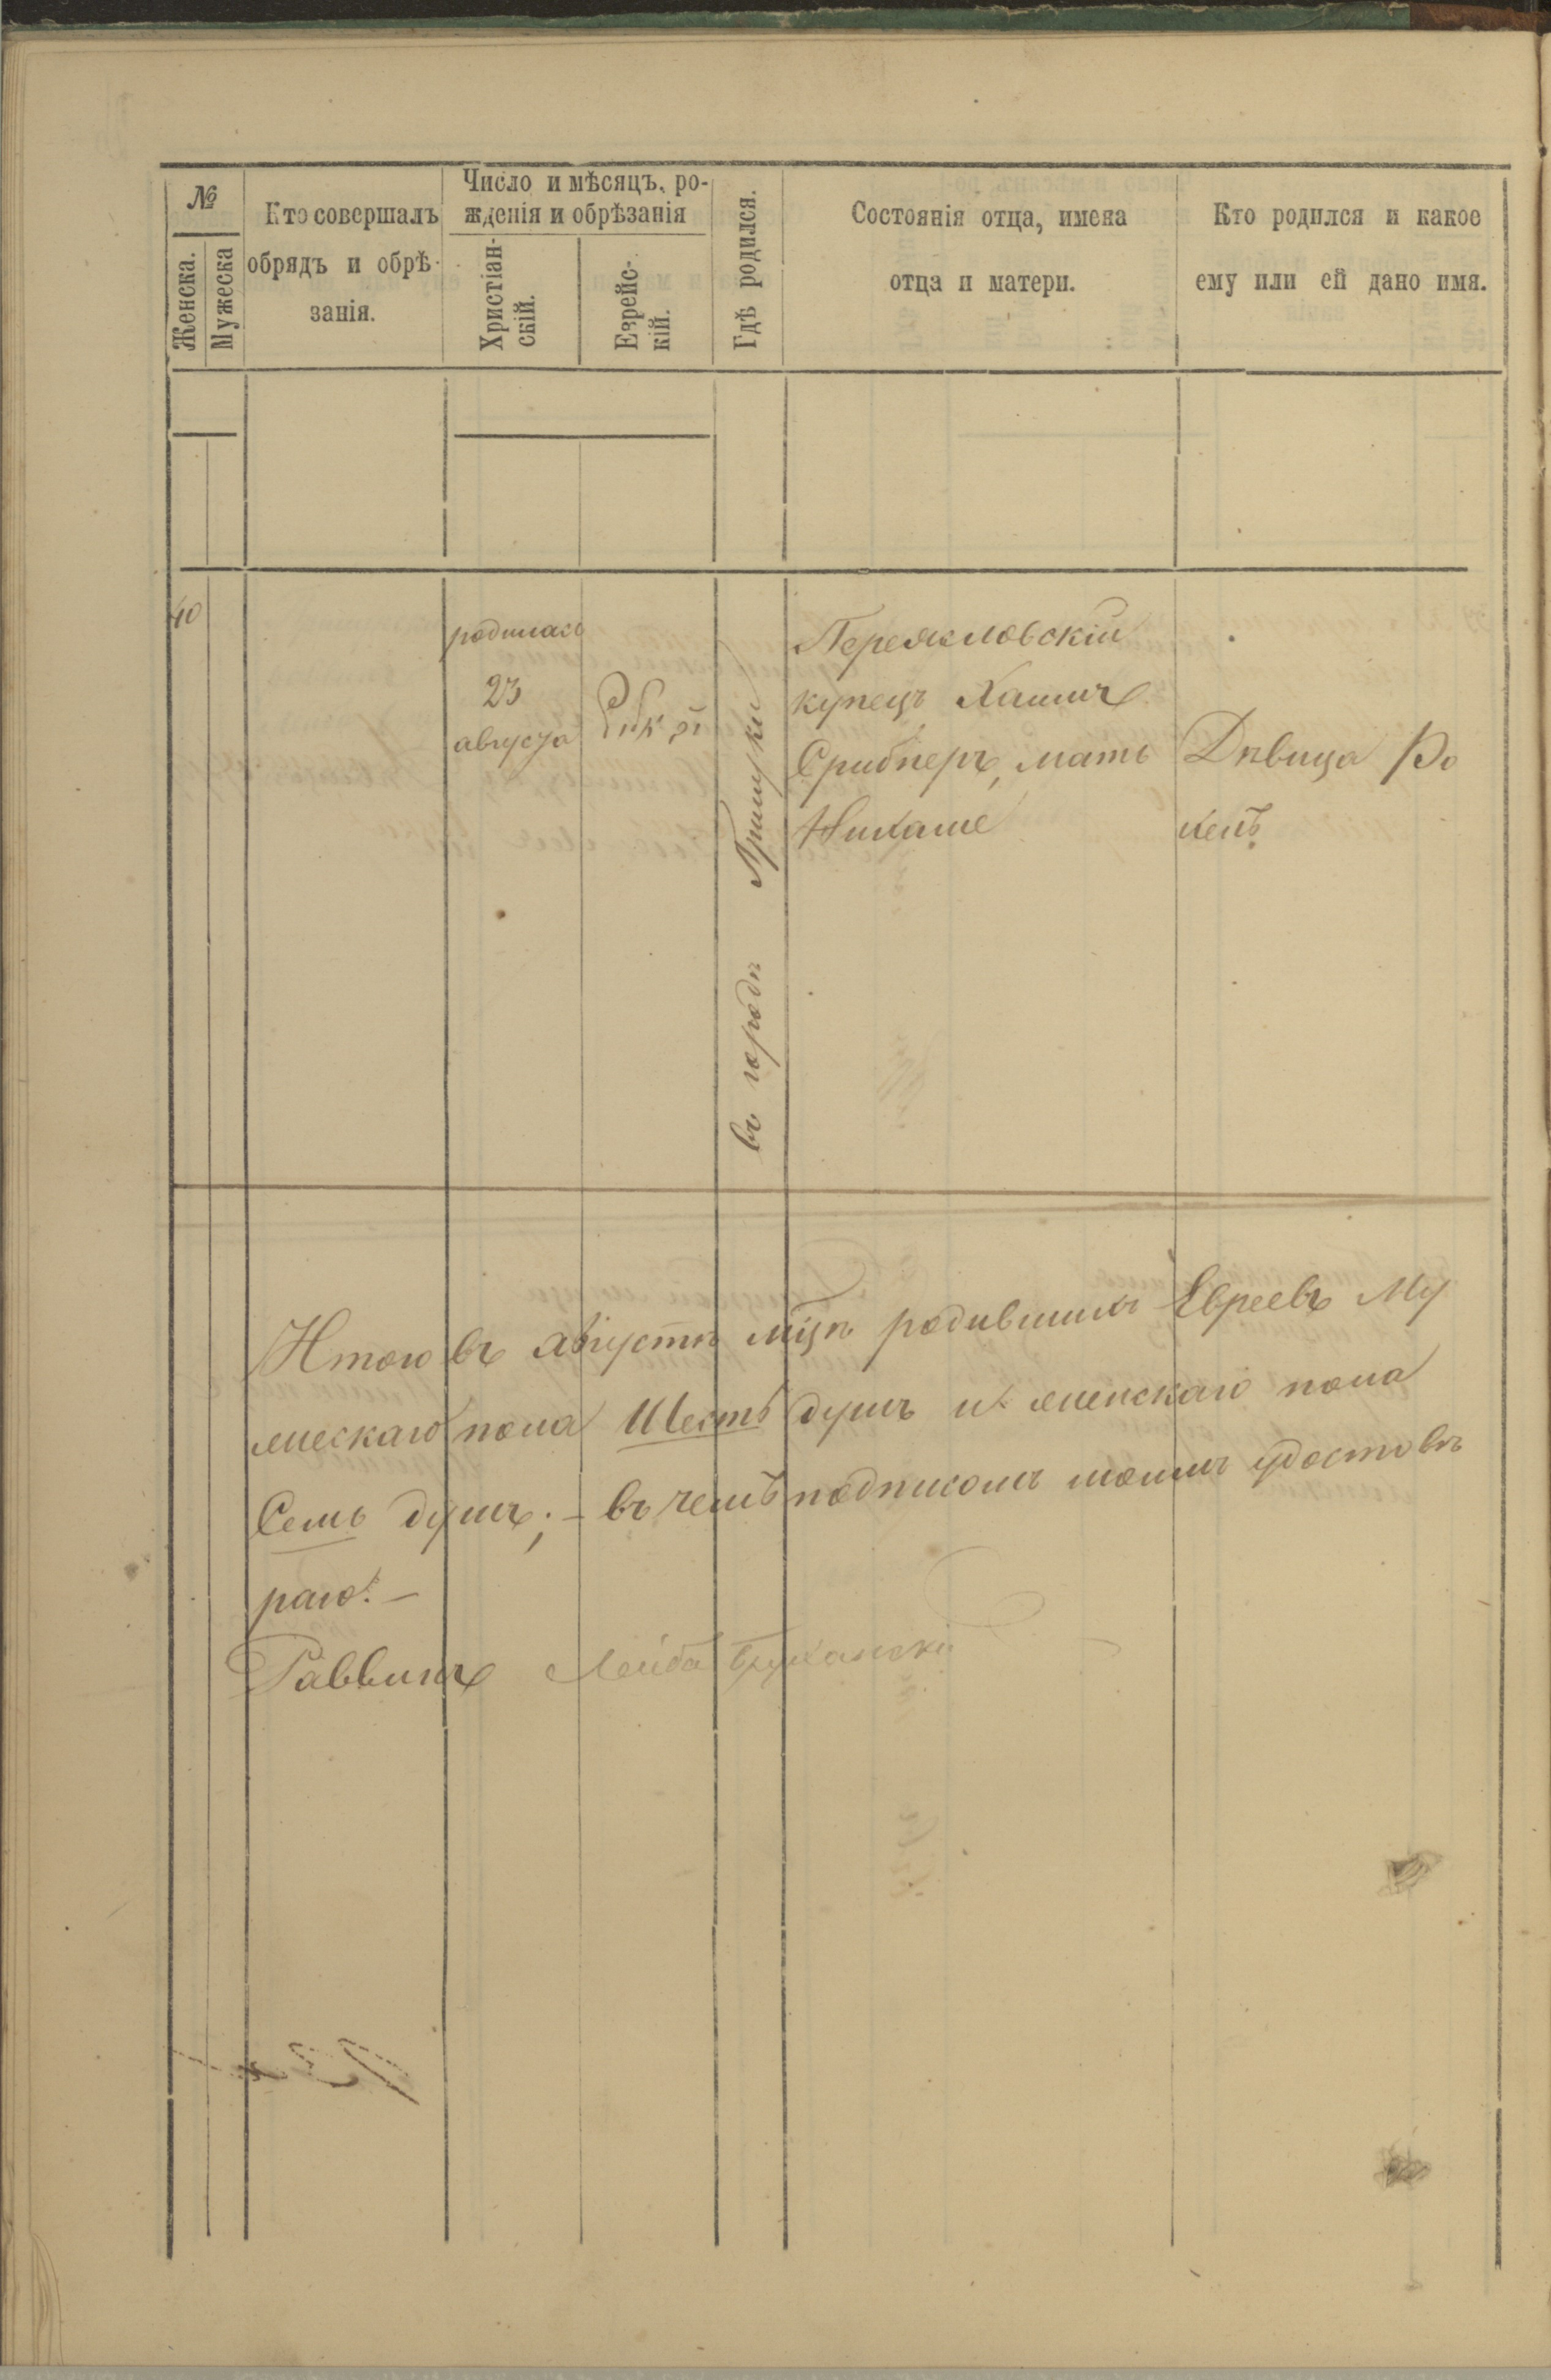 №
Женска.
Мужеска
Кто совершалъ
обрядъ и обрѣ-
занія.
Число и мѣсяцъ, ро-
жденія и обрѣзанія
Христіан-
скій.
Еврейс-
кій.
Гдѣ родился.
Состоянія отца, имена
отца и матери.
Кто родился и какое
ему или ей дано имя.
40
родилась
23
августа
въ городѣ Прилуки
Переяславскій
купецъ Хаимъ
Срибнеръ, мать
Дѣвица Ро
Итого въ августѣ мцѣ родившихъ Евреевъ Му
жескаго пола Шесть душъ и женскаго пола
Семь душъ; – въ чемъ подписомъ моимъ удостовѣ
раю. –
Раввинъ Лейба